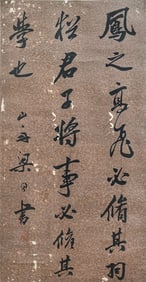 鳳之高飛必脩其羽
猶君子將事必脩其
學也
山舟梁同書